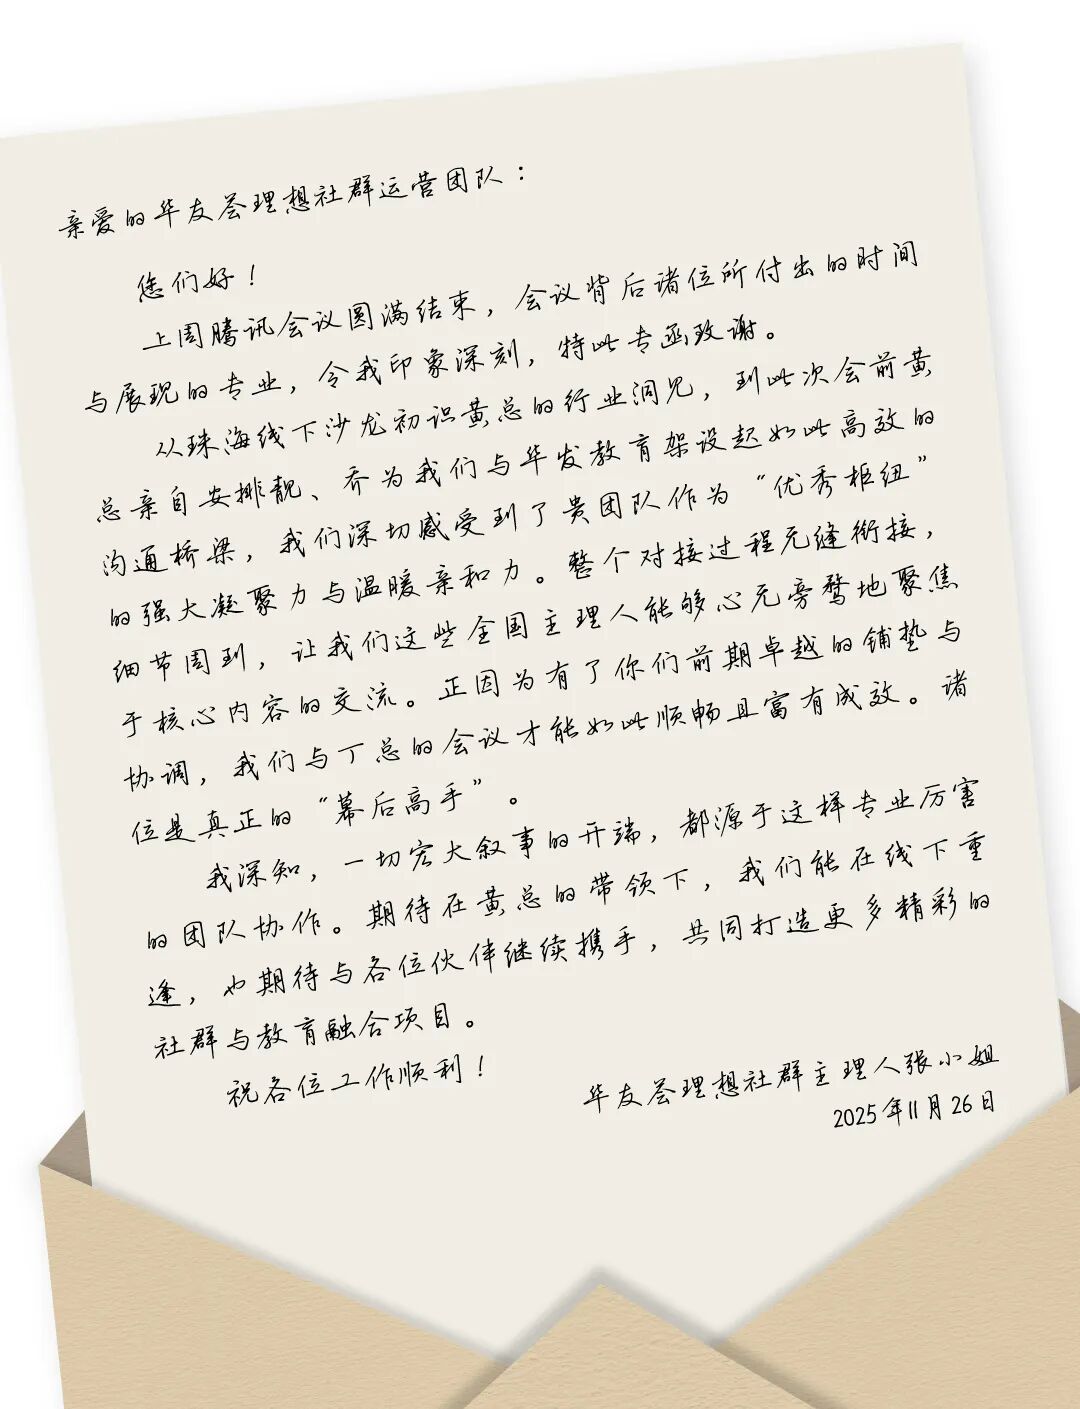 亲爱的华友荟理想社群运营团队：
您们好！
上周腾讯会议圆满结束，会议背后诸位所付出的时间
与展现的专业，令我印象深刻，特此专函致谢。
从珠海线下沙龙初识黄总的行业洞见，到此次会前黄
总亲自安排靓、乔为我们与华发教育架设起如此高效的
沟通桥梁，我们深切感受到了贵团队作为“优秀枢纽”
的强大凝聚力与温暖亲和力。整个对接过程无缝衔接，
细节周到，让我们这些全国主理人能够心无旁骛地聚焦
于核心内容的交流。正因为有了你们前期卓越的铺垫与
协调，我们与丁总的会议才能如此顺畅且富有成效。诸
位是真正的“幕后高手”。
我深知，一切宏大叙事的开端，都源于这样专业厉害
的团队协作。期待在黄总的带领下，我们能在线下重
逢，也期待与各位伙伴继续携手，共同打造更多精彩的
社群与教育融合项目。
祝各位工作顺利！
华友荟理想社群主理人张小姐
2025年11月26日